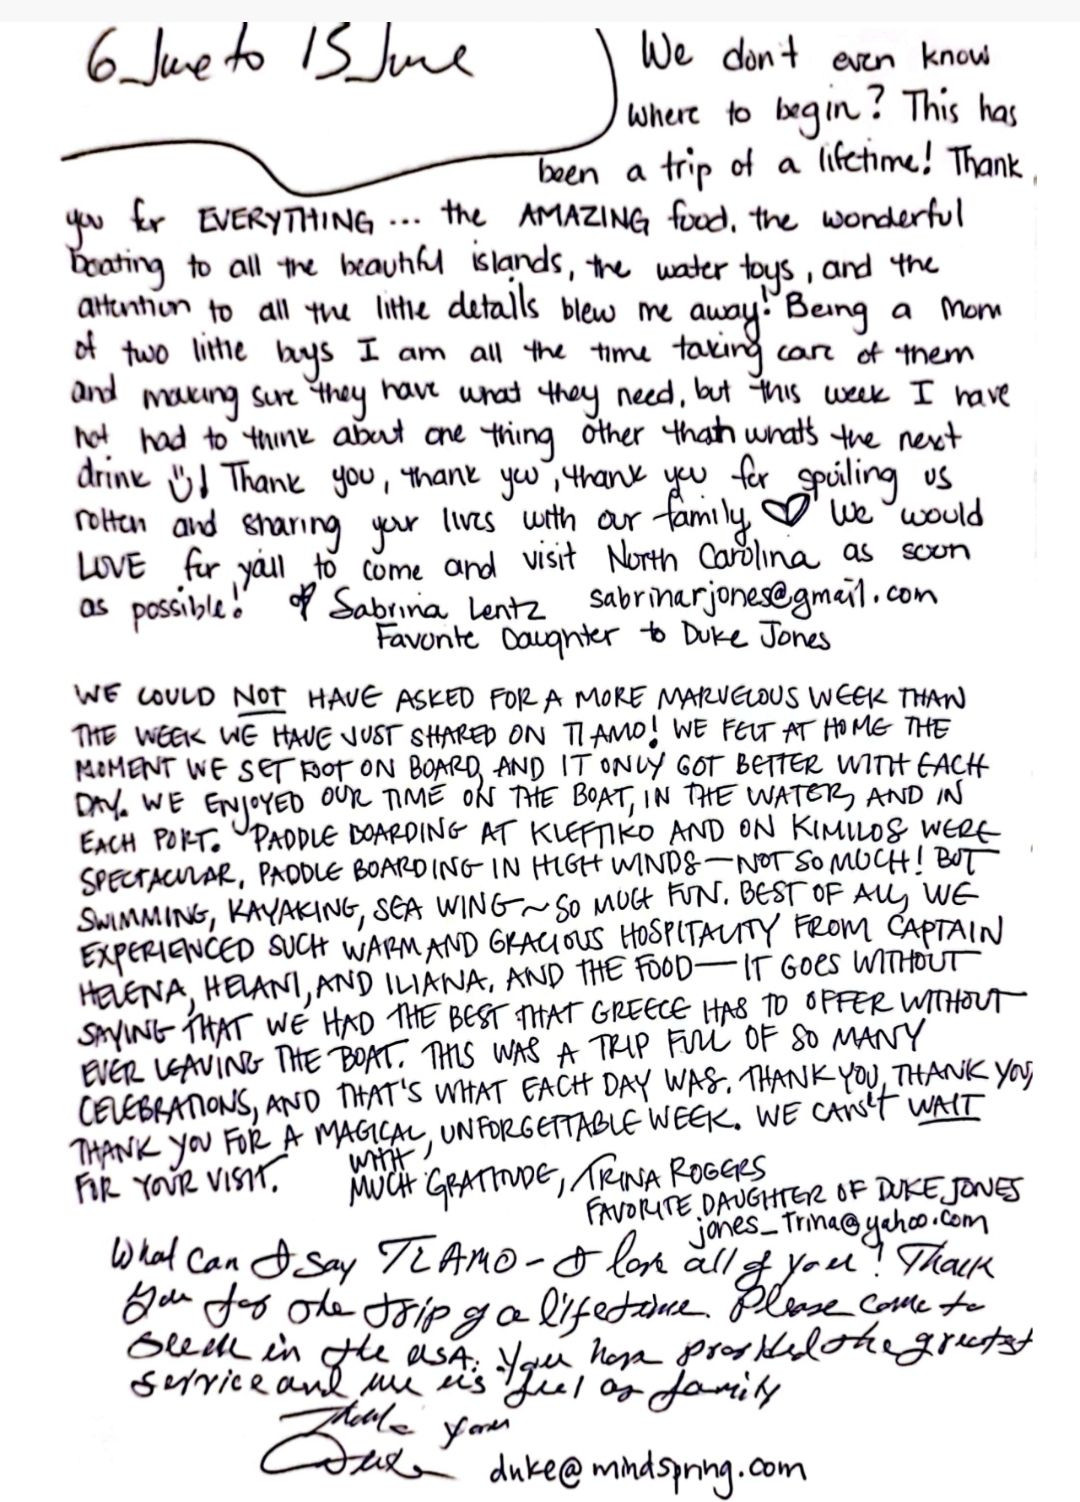 6 June to 15 June
We don't even know
where to begin? This has
been a trip of a lifetime! Thank
you for EVERYTHING ... the AMAZING food, the wonderful
boating to all the beautiful islands, the water toys, and the
attention to all the little details blew me away! Being a Mom
of two little boys I am all the time taking care of them
and making sure they have what they need, but this week I have
not had to think about one thing other than what's the next
drink ! Thank you, thank you, thank you for spoiling us
rotten and sharing your lives with our family ♡ We would
LOVE for yall to come and visit North Carolina as soon
as possible! Sabrina Lentz sabrinarjones@gmail.com
Favorite Daughter to Duke Jones
WE COULD NOT HAVE ASKED FOR A MORE MARVELOUS WEEK THAN
THE WEEK WE HAVE JUST SHARED ON TI AMO! WE FELT AT HOME THE
MOMENT WE SET FOOT ON BOARD, AND IT ONLY GOT BETTER WITH EACH
DAY. WE ENJOYED OUR TIME ON THE BOAT, IN THE WATER, AND IN
EACH PORT. PADDLE BOARDING AT KLEFTIKO AND ON KIMILOS WERE
SPECTACULAR, PADDLE BOARDING IN HIGH WINDS — NOT SO MUCH! BUT
SWIMMING, KAYAKING, SEA WING ~ SO MUCH FUN. BEST OF ALL, WE
EXPERIENCED SUCH WARM AND GRACIOUS HOSPITALITY FROM CAPTAIN
HELENA, HELANI, AND ILIANA. AND THE FOOD — IT GOES WITHOUT
SAYING THAT WE HAD THE BEST THAT GREECE HAS TO OFFER WITHOUT
EVER LEAVING THE BOAT. THIS WAS A TRIP FULL OF SO MANY
CELEBRATIONS, AND THAT'S WHAT EACH DAY WAS. THANK YOU, THANK YOU,
THANK YOU FOR A MAGICAL, UNFORGETTABLE WEEK. WE CAN'T WAIT
FOR YOUR VISIT. WITH
MUCH GRATITUDE, TRINA ROGERS
FAVORITE DAUGHTER OF DUKE JONES
jones_trina@yahoo.com
What can I say TI AMO - I love all of you! Thank
you for the trip of a lifetime. Please come to
see me in the USA. You have provided the greatest
service and me us feel as family
Thank you
Duke duke@mindspring.com